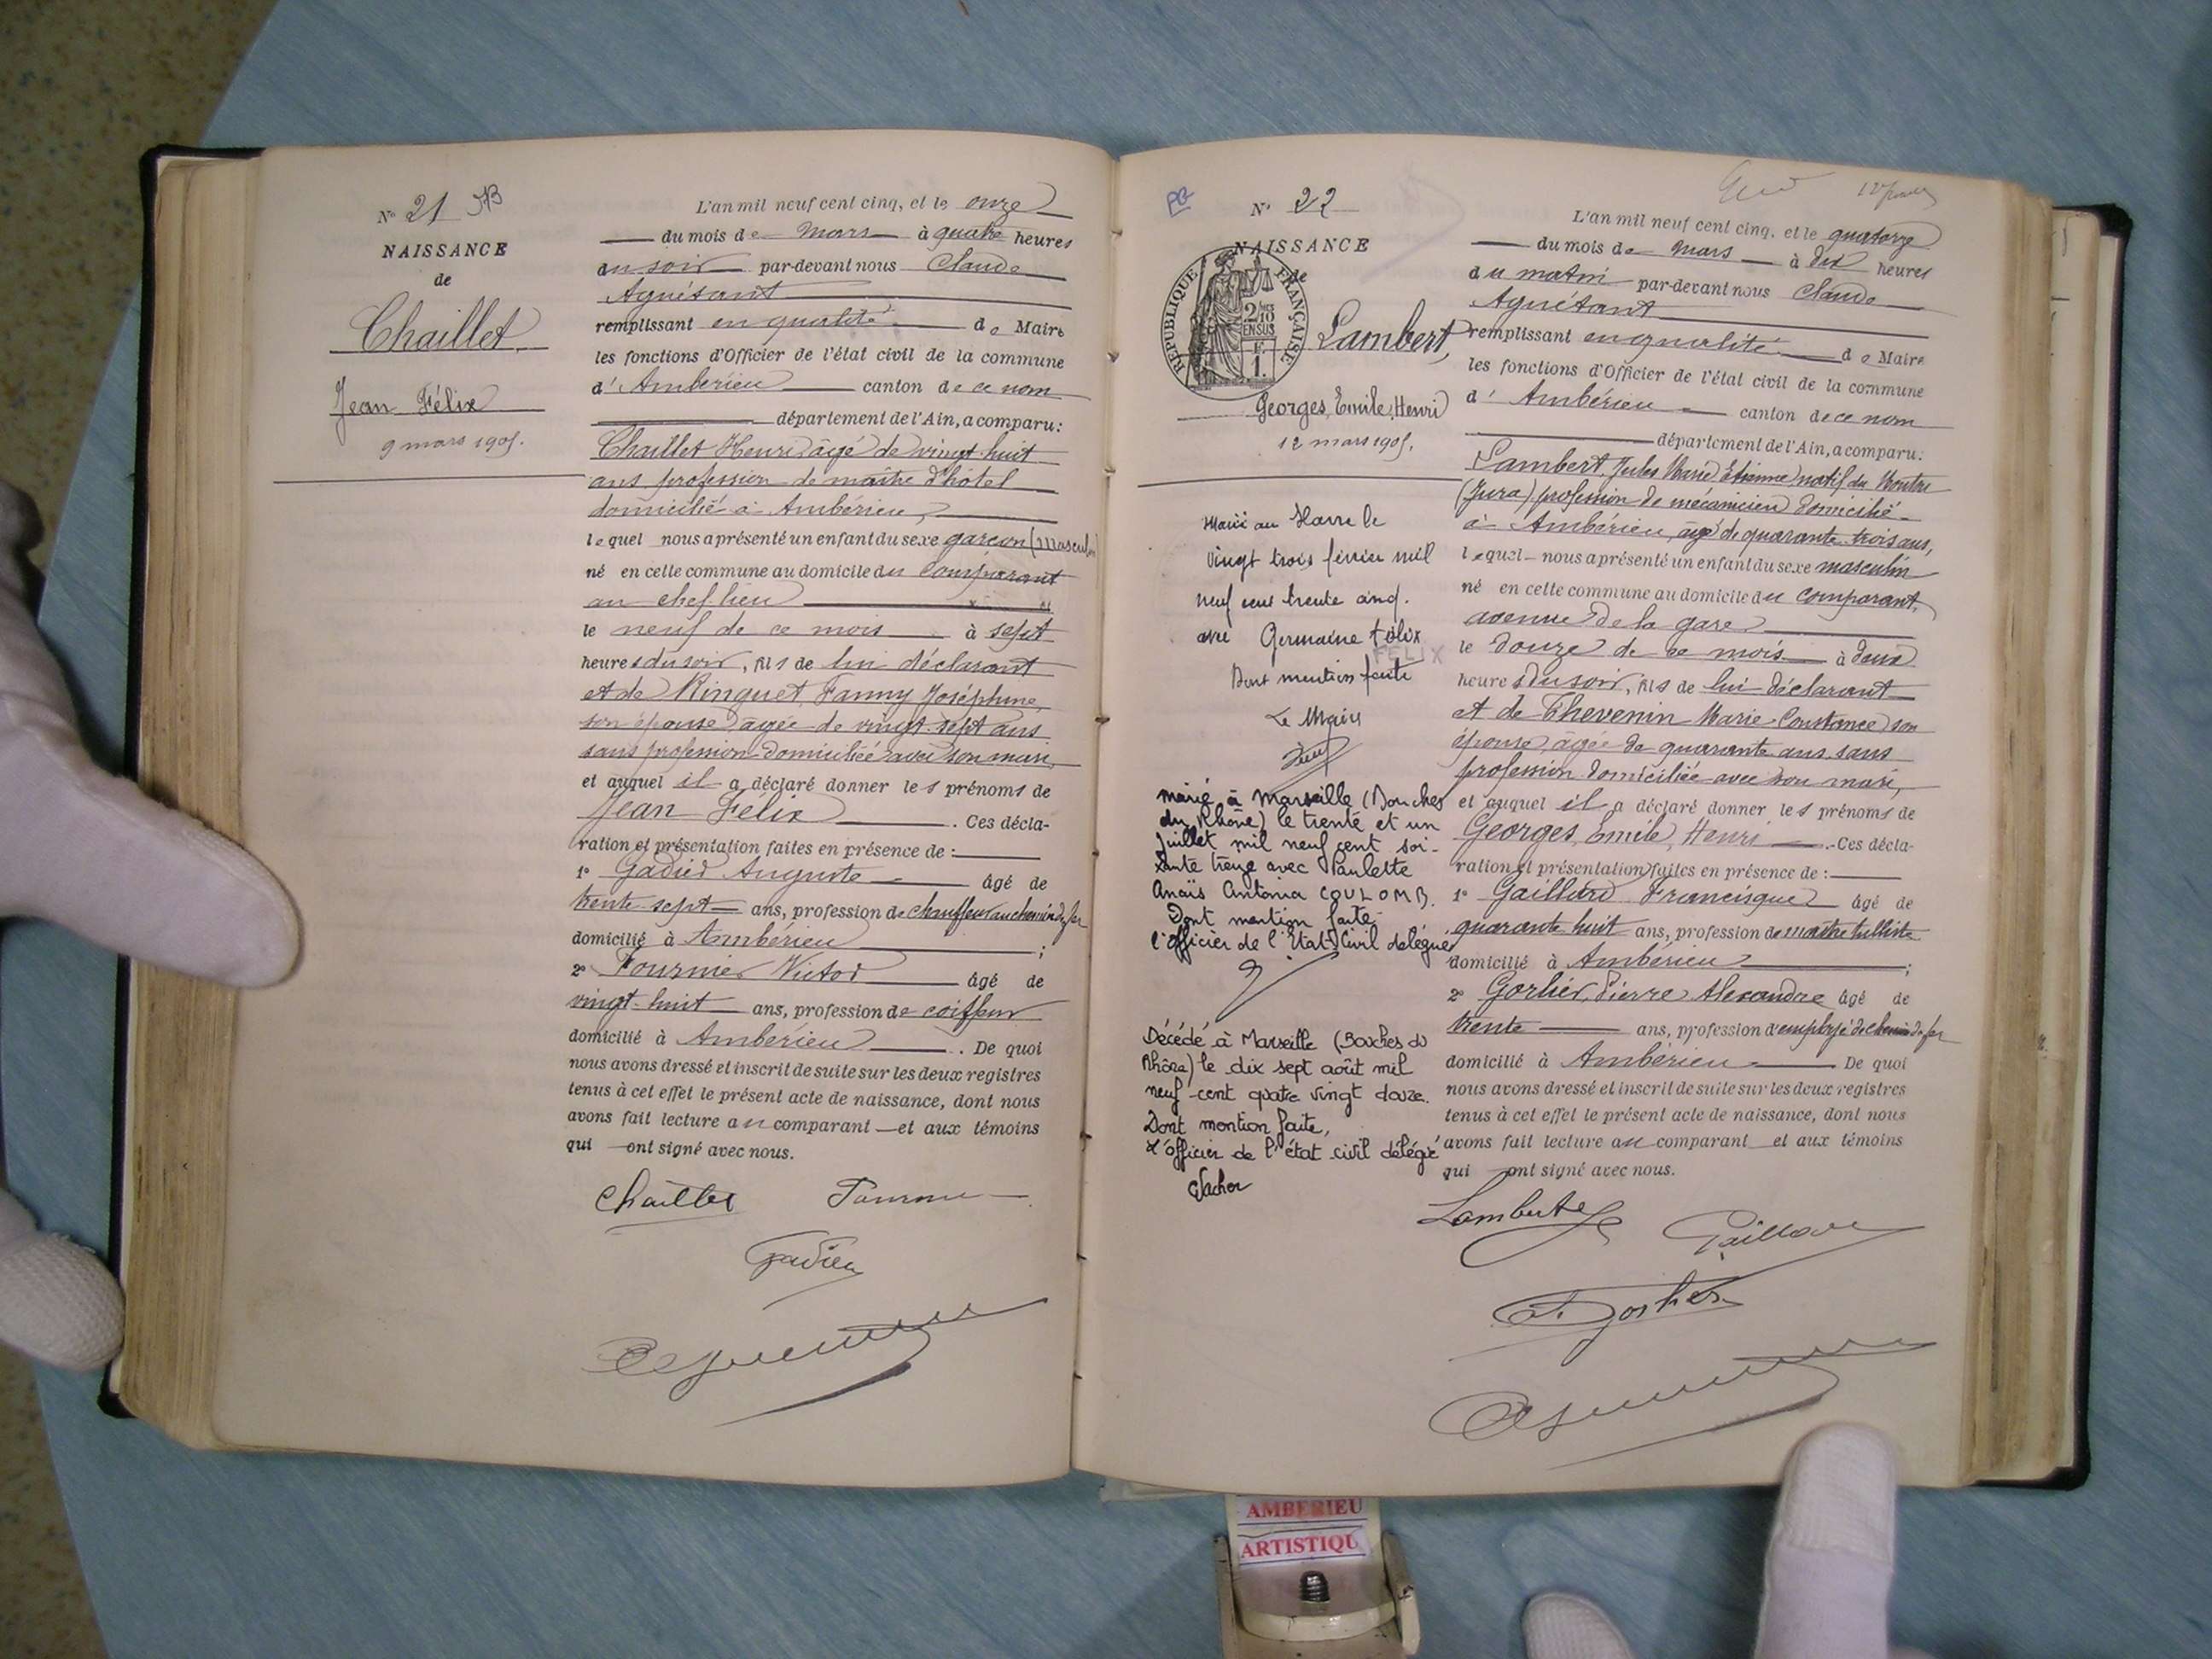 N° 21
NAISSANCE
de
Chaillet
Jean Félix
9 mars 1905.
L'an mil neuf cent cinq, et le onze
du mois de mars à quatre heures
du soir par-devant nous Claude
Aguétant
remplissant en qualité de Maire
les fonctions d'Officier de l'état civil de la commune
d'Ambérieu canton de ce nom
département de l'Ain, a comparu:
Chaillet Henri âgé de vingt-huit
ans profession de maître d'hôtel
domicilié à Ambérieu,
lequel nous a présenté un enfant du sexe garçon (masculin)
né en celle commune au domicile du comparant
au chef-lieu
le neuf de ce mois à sept
heures du soir, fils de lui déclarant
et de Ringuet, Fanny Joséphine,
son épouse âgée de vingt-sept ans
sans profession domiciliée avec son mari,
et auquel il a déclaré donner les prénoms de
Jean Félix . Ces décla-
ration et présentation faites en présence de :
1° Gadieu Auguste âgé de
trente-sept ans, profession de chauffeur au chemin de fer
domicilié à Ambérieu ;
2° Fournier Victor âgé de
vingt-huit ans, profession de coiffeur
domicilié à Ambérieu . De quoi
nous avons dressé et inscrit de suite sur les deux registres
tenus à cet effet le présent acte de naissance, dont nous
avons fait lecture au comparant et aux témoins
qui ont signé avec nous.
Chaillet
Gadieu
PG
N° 22
NAISSANCE
de
RÉPUBLIQUE FRANÇAISE
2/10
EN SUS
F.
1.
Lambert,
Georges, Emile, Henri
12 mars 1905.
Marié au Havre le
vingt trois février mil
neuf cent trente cinq.
avec Germaine Félix
FELIX
Dont mention faite
Le Maire
marié à Marseille (Bouches
du Rhône) le trente et un
juillet mil neuf cent soi-
xante treize avec Paulette
Anaïs Antonia COULOMB.
Dont mention faite
l'officier de l'Etat Civil délégué
Décédé à Marseille (Bouches du
Rhône) le dix sept août mil
neuf cent quatre vingt douze.
Dont mention faite,
L'officier de l'état civil délégué
L'an mil neuf cent cinq, et le quatorze
du mois de mars à dix heures
du matin par-devant nous Claude
Aguétant
remplissant en qualité de Maire
les fonctions d'Officier de l'état civil de la commune
d'Ambérieu canton de ce nom
département de l'Ain, a comparu:
Lambert, Jules Marie Etienne natif du
(Jura) profession de mécanicien domicilié
à Ambérieu, âgé de quarante-trois ans,
lequel nous a présenté un enfant du sexe masculin
né en celle commune au domicile du comparant,
avenue de la gare
le douze de ce mois à deux
heures du soir, fils de lui déclarant
et de Thevenin Marie-Constance son
épouse, âgée de quarante ans, sans
profession domiciliée avec son mari,
et auquel il a déclaré donner les prénoms de
Georges, Emile, Henri . Ces décla-
ration et présentation faites en présence de :
1° Gaillard Francisque âgé de
quarante huit ans, profession de maître tulliste
domicilié à Ambérieu ;
2° Gorlier, Pierre Alexandre âgé de
trente ans, profession d'employé de chemin de fer
domicilié à Ambérieu De quoi
nous avons dressé et inscrit de suite sur les deux registres
tenus à cet effet le présent acte de naissance, dont nous
avons fait lecture au comparant et aux témoins
qui ont signé avec nous.
Lambert
Gaillard
Gorlier
AMBERIEU
ARTISTIQU